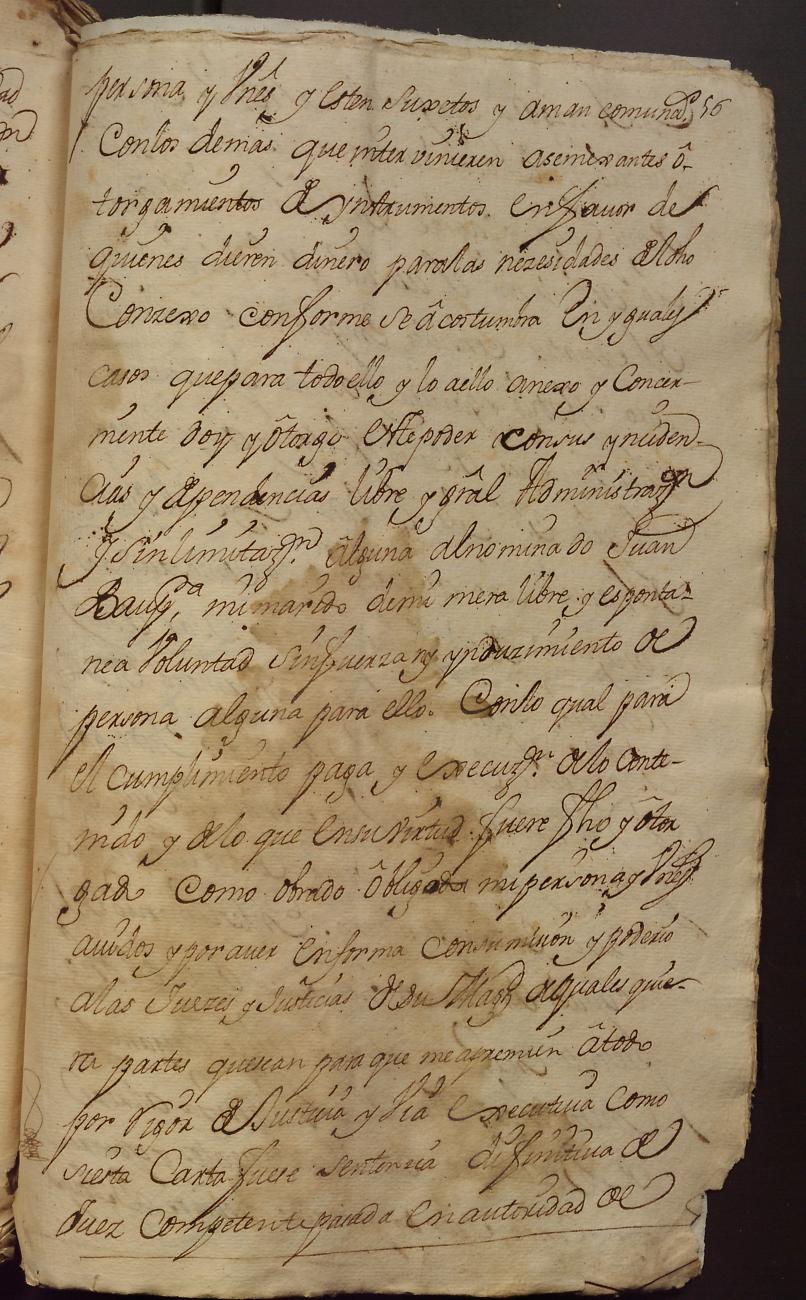 persona y Vnēs y esten suxetos y aman comund. 56
Conlos demas que inter vinieren asemexantes ô-
torgamientos de ynstrumentos en favor de
quienes dieren dinero paralas nezesidades deldho
Conzexo conforme se âcostumbra En yguales
casos que para todo ello y lo aello anexo y Concer-
mente doy y ôtorgo este poder consus ynciden-
cias y dependencias libre y grâl Administrazn
y sinlimitazn. âlguna alnominado Juan
Baupta, mi marido demi mera libre y esponta-
nea Voluntad sinfuerza ny ynduzimiento de
persona alguna para ello. Conlo qual para
el cumplimiento paga y execuzn. delo conte-
nido y delo que Ensu virtud fuere fho y ôtor
gado como obrado ôbligada mi persona y Vnēs
auidos y por auer Enforma Consumision y poderio
alas Juezes y Justicias de su Magd de quales quie-
ra partes que sean para que me apremien âtodo
por Rigor de Justicia y Via Executiua como
siesta Carta fuere sentencia difinitiua de
Juez Competente pasada en autoridad de